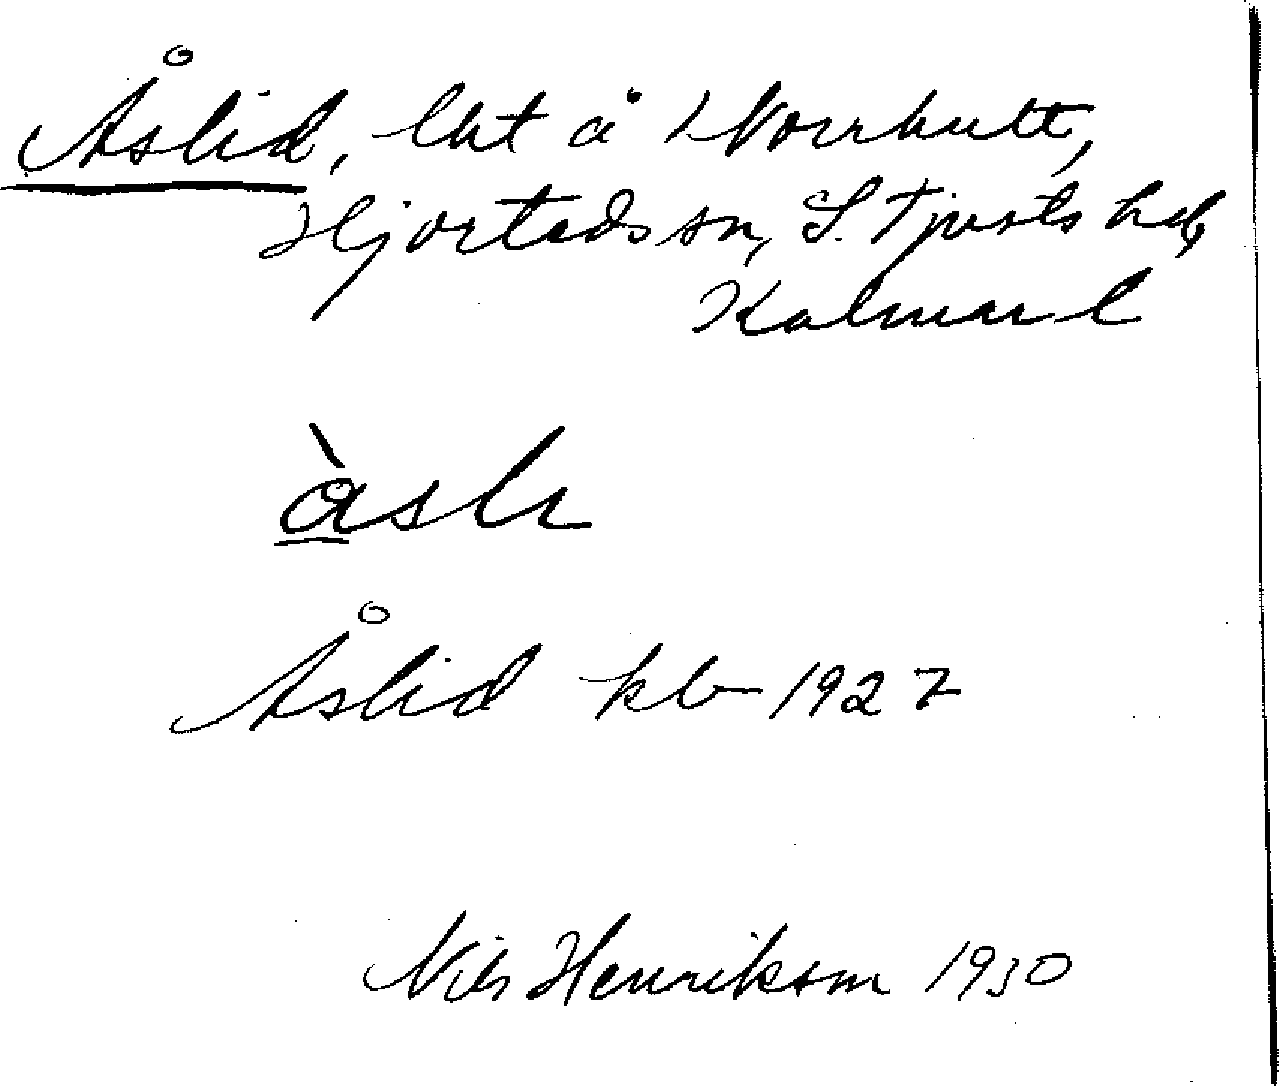 Åslid, lht å Norrhult,
Hjorteds sn, S. Tjusts hd,
Kalmar l
åslı
Åslid kb 1927
Nils Henrikson 1930